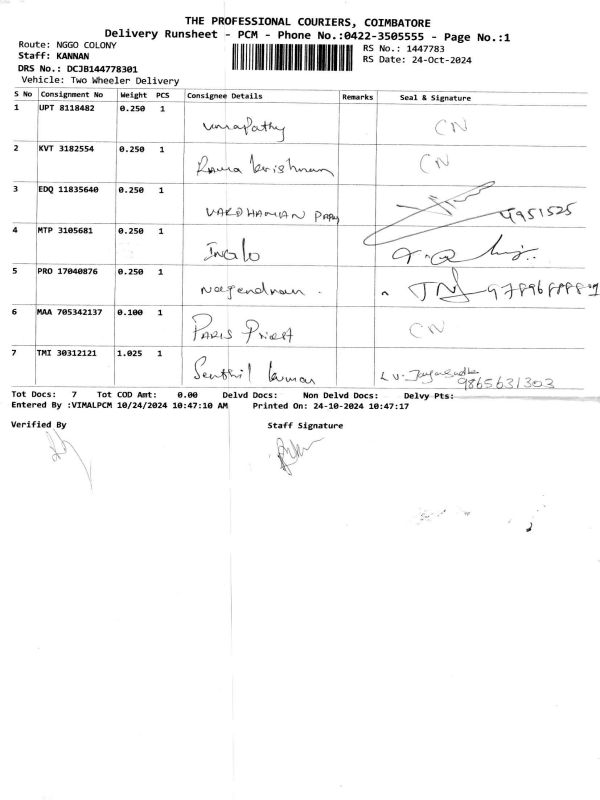 THE PROFESSIONAL COURIERS, COIMBATORE
Delivery Runsheet - PCM - Phone No.:0422-3505555 - Page No.:1
Route: NGGO COLONY
Staff: KANNAN
DRS No.: DCJB144778301
Vehicle: Two Wheeler Delivery
RS No.: 1447783
RS Date: 24-Oct-2024
S No Consignment No Weight PCS Consignee Details Remarks Seal & Signature
1 UPT 8118482 0.250 1 Umapathy CN
2 KVT 3182554 0.250 1 Rama krishnan CN
3 EDQ 11835640 0.250 1 VARDHAMAN 9951525
4 MTP 3105681 0.250 1
5 PRO 17040876 0.250 1 Nagendran.
6 MAA 705342137 0.100 1 PARIS Priest CN
7 TMI 30312121 1.025 1 Senthil kumar 9865631303
Tot Docs: 7 Tot COD Amt: 0.00 Delvd Docs: Non Delvd Docs: Delvy Pts:
Entered By :VIMALPCM 10/24/2024 10:47:10 AM Printed On: 24-10-2024 10:47:17
Verified By Staff Signature